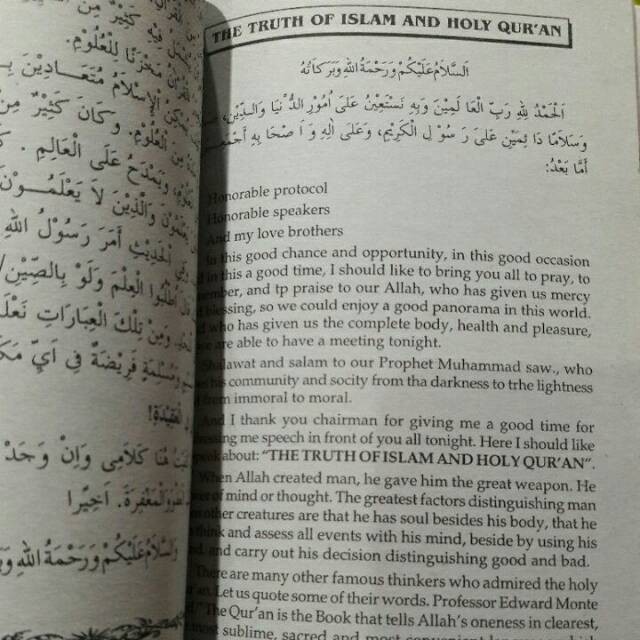 كَثِيْرٌ مِنَ
مَخْزَنًا لِلْعُلُوْمِ.
الْإِسْلَامُ مُتَعَادِيْنَ
مِنَ الْعُلُوْمِ. وَكَانَ كَثِيْرٌ مِنَ
وَيَمْدَحُ عَلَى الْعَالِمِ.
وَالَّذِيْنَ لَا يَعْلَمُوْنَ
الْحَدِيْثِ أَمَرَ رَسُوْلُ اللهِ
اُطْلُبُوا الْعِلْمَ وَلَوْ بِالصِّيْنِ/
وَمِنْ تِلْكَ الْعِبَارَاتِ
وَمُسْلِمَةٍ فَرِيْضَةٌ فِي أَيِّ
هُنَا كَلَامِى وَإِنْ وَجَدَ
وَالْمَغْفِرَةَ. أَخِيْرًا
وَالسَّلَامُ عَلَيْكُمْ وَرَحْمَةُ اللهِ
THE TRUTH OF ISLAM AND HOLY QUR'AN
اَلسَّلَامُ عَلَيْكُمْ وَرَحْمَةُ اللهِ وَبَرَكَاتُهُ
اَلْحَمْدُ لِلّٰهِ رَبِّ الْعَا لَمِيْنَ وَبِهِ نَسْتَعِيْنُ عَلَى أُمُوْرِ الدُّ نْيَا وَالدِّيْنِ،
وَسَلَامًا دَا ئِمَيْنِ عَلَى رَ سُوْ لِ الْكَرِيْمِ، وَعَلَى اٰلِهِ وَ اَ صْحَا بِهِ
أَمَّا بَعْدُ:
Honorable protocol
Honorable speakers
And my love brothers
In this good chance and opportunity, in this good occasion
in this a good time, I should like to bring you all to pray, to
and tp praise to our Allah, who has given us mercy
blessing, so we could enjoy a good panorama in this world.
who has given us the complete body, health and pleasure,
are able to have a meeting tonight.
Shalawat and salam to our Prophet Muhammad saw., who
his community and socity from tha darkness to trhe lightness
them immoral to moral.
And I thank you chairman for giving me a good time for
me speech in front of you all tonight. Here I should like
about: "THE TRUTH OF ISLAM AND HOLY QUR'AN".
When Allah created man, he gave him the great weapon. He
of mind or thought. The greatest factors distinguishing man
other creatures are that he has soul besides his body, that he
think and assess all events with his mind, beside by using his
and carry out his decision distinguishing good and bad.
There are many other famous thinkers who admired the holy
Let us quote some of their words. Professor Edward Monte
"The Qur'an is the Book that tells Allah's oneness in clearest,
most sublime, sacred and most